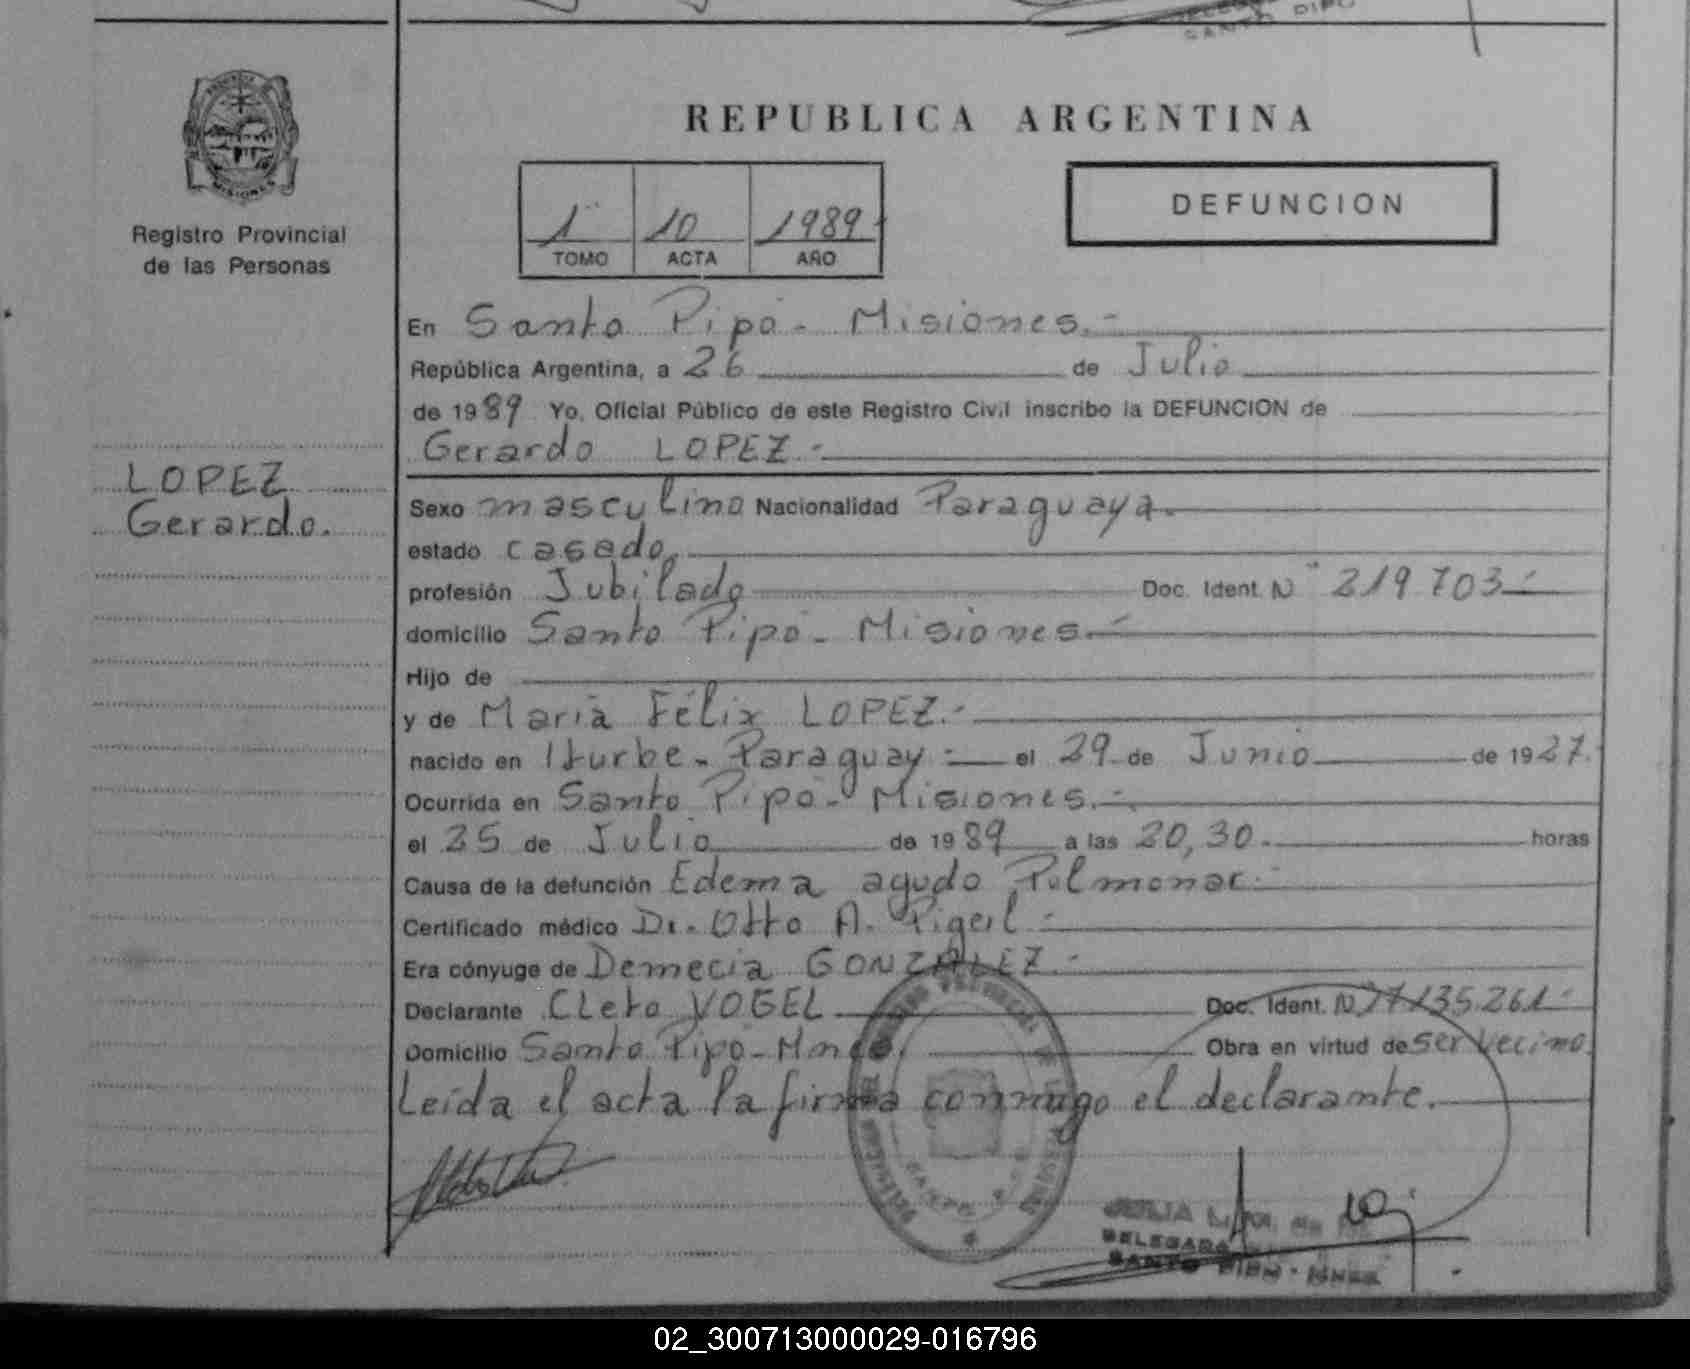 SANTO PIPO
PROVINCIA
MISIONES
Registro Provincial
de las Personas
REPUBLICA ARGENTINA
1 10 1989
TOMO ACTA AÑO
DEFUNCION
En Santo Pipó - Misiones.-
República Argentina, a 26 de Julio
de 1989 Yo, Oficial Público de este Registro Civil inscribo la DEFUNCION de
Gerardo LOPEZ.-
LOPEZ
Gerardo.
Sexo masculino Nacionalidad Paraguaya.
estado casado.
profesión Jubilado Doc. Ident. Nº 219.703.-
domicilio Santo Pipó - Misiones.-
Hijo de
y de María Félix LOPEZ.-
nacido en Iturbe - Paraguay.- el 29 de Junio de 1927.
Ocurrida en Santo Pipó - Misiones.-
el 25 de Julio de 1989 a las 20,30.- horas
Causa de la defunción Edema agudo Pulmonar.-
Certificado médico Dr. Otto A. Pigeil.-
Era cónyuge de Demecia GONZALEZ.-
Declarante Cleto VOGEL Doc. Ident. Nº 17.135.261.-
Domicilio Santo Pipó - Mnes. Obra en virtud de ser vecino.
Leída el acta la firma conmigo el declarante.
JULIA
DELEGADA
SANTO PIPO - MNES
02_300713000029-016796